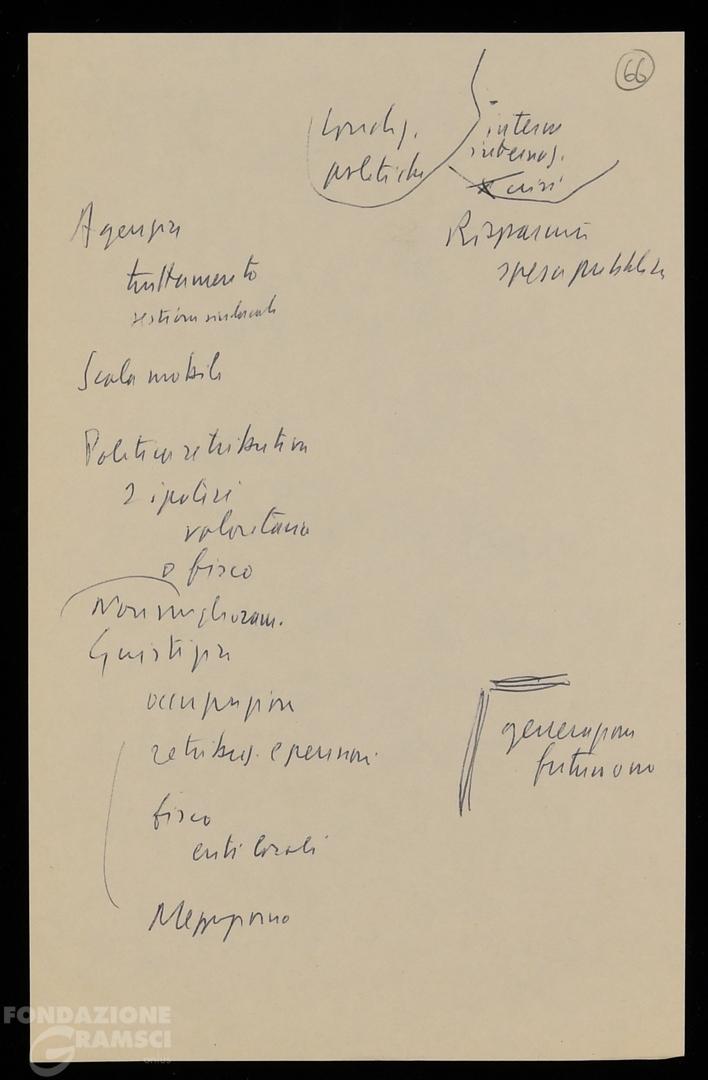 66
Condiz.
politiche
interne
internaz.
crisi
Agenzia
trattamento
gestione sindacale
Risparmio
spesa pubblica
Scala mobile
Politica retributiva
2 ipotesi
volontaria
o fisco
Non miglioram.
Giustizia
occupazione
retribuz. e pensioni
fisco
enti locali
Mezzogiorno
generazioni
futuro
FONDAZIONE
GRAMSCI
onlus